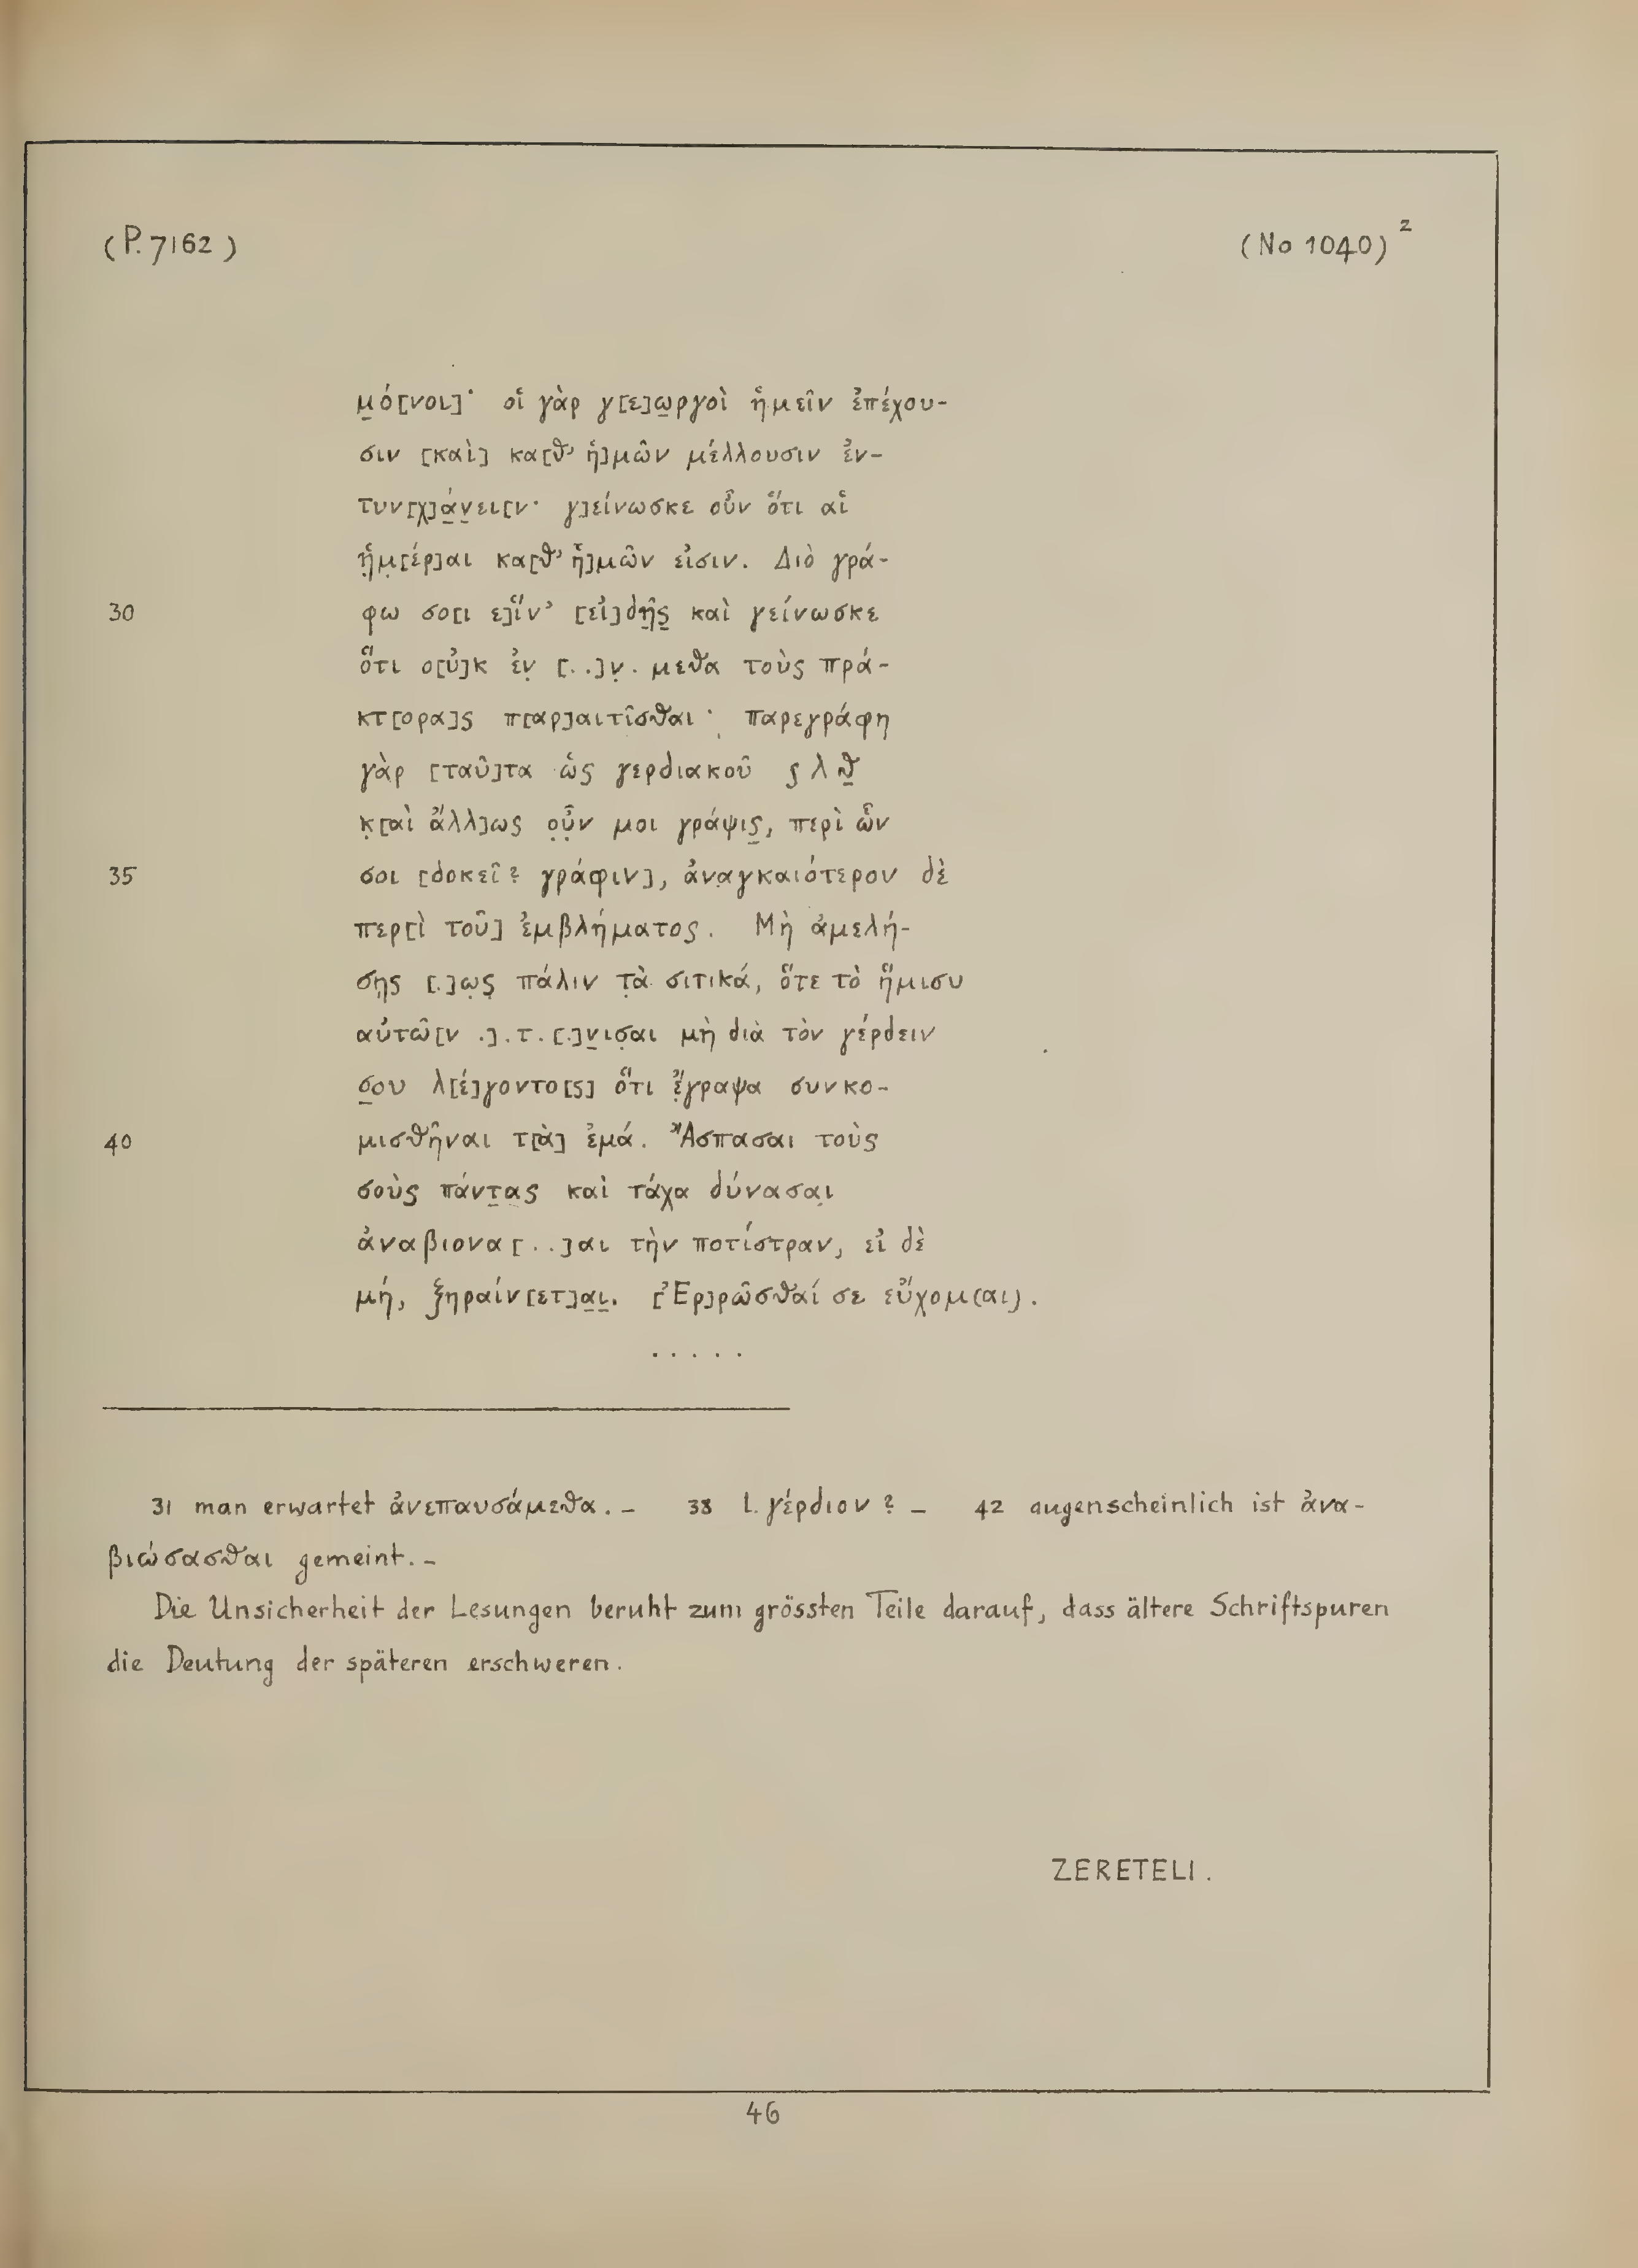 (P. 7162) (No 1040)²
μ̣ό[νοι]· οἱ γὰρ γ[ε]ω̣ργοὶ ἡμεῖν ἐπέχου-
σιν [καὶ] κα[θ’ ἡ]μῶν μέλλουσιν ἐν-
τυν[χ]ά̣ν̣ει[ν· γ]είνωσκε οὖν ὅτι αἱ
ἡ̣μ̣[έρ]αι κα[θ’ ἡ]μῶν εἰσιν. Διὸ γρά-
30 φω σο[ι ε]ἵν’ [εἰ]δῆ̣ς̣ καὶ γείνωσκε
ὅτι ο[ὐ]κ ἐν̣ [..]ν̣. μεθα τοὺς πρά-
κτ[ορα]ς π[αρ]αιτῖσθαι· παρεγράφη
γὰρ [ταῦ]τα ὡς γερδιακοῦ ς λ θ̣
κ̣[αὶ ἄλλ]ως ο̣ὖ̣ν μοι γράψις̣, περὶ ὧν
35 σοι [δοκεῖ? γράφιν], ἀνα̣γκαιότερον δὲ
περ[ὶ τοῦ] ἐμβλήματος. Μὴ ἀμελή-
ση̣ς [.]ω̣ς̣ πάλιν τ̣ὰ σιτικά, ὅτε τὸ ἥμισυ
αὐτῶ[ν .].τ.[.]ν̣ισ̣αι μὴ διὰ τὸν γέρδειν
σ̣ου λ[έ]γοντο[ς] ὅτι ἔ̣γραψα συνκο-
40 μισθῆναι τ[ὰ] ἐμά. Ἄσπασαι τοὺς
σοὺς πάντ̣α̣ς καὶ τάχα δύνασα̣ι
ἀναβιονα[..]αι τὴν ποτίστραν, εἰ δὲ
μή, ξηραίν[ετ]α̣ι̣. [Ἐρ]ρῶσθαί σε εὔχομ(αι).
.....
31 man erwartet ἀνεπαυσάμεθα. – 38 l. γέρδιον? – 42 augenscheinlich ist ἀνα-
βιώσασθαι gemeint. –
Die Unsicherheit der Lesungen beruht zum grössten Teile darauf, dass ältere Schriftspuren
die Deutung der späteren erschweren.
ZERETELI.
46